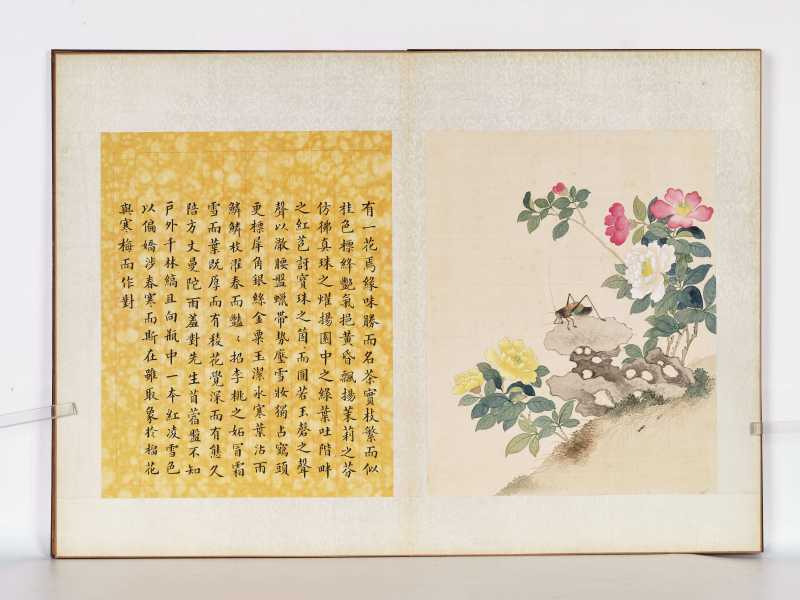 有一花焉緣味勝而名茶實枝繁而似
桂色標絳艷氣挹黃昏飄揚茉莉之芬
仿彿真珠之燿揚園中之綠葉吐階畔
之紅苞訝寶珠之箇而圓若玉磬之聲
聲以澈腰盤蠟帶勢壓雪妝獨占鼇頭
更標犀角銀絲金粟玉潔冰寒葉沾雨
鱗鱗枝濯春而豔〻招李桃之妬冒霜
雪而葉既厚而有稜花覺深而有態久
陪方丈曼陀雨蓋對先生苜蓿盤不知
戶外千林縞且向瓶中一本紅凌雪色
以偏嬌涉春寒而斯在雖取象於榴花
與寒梅而作對